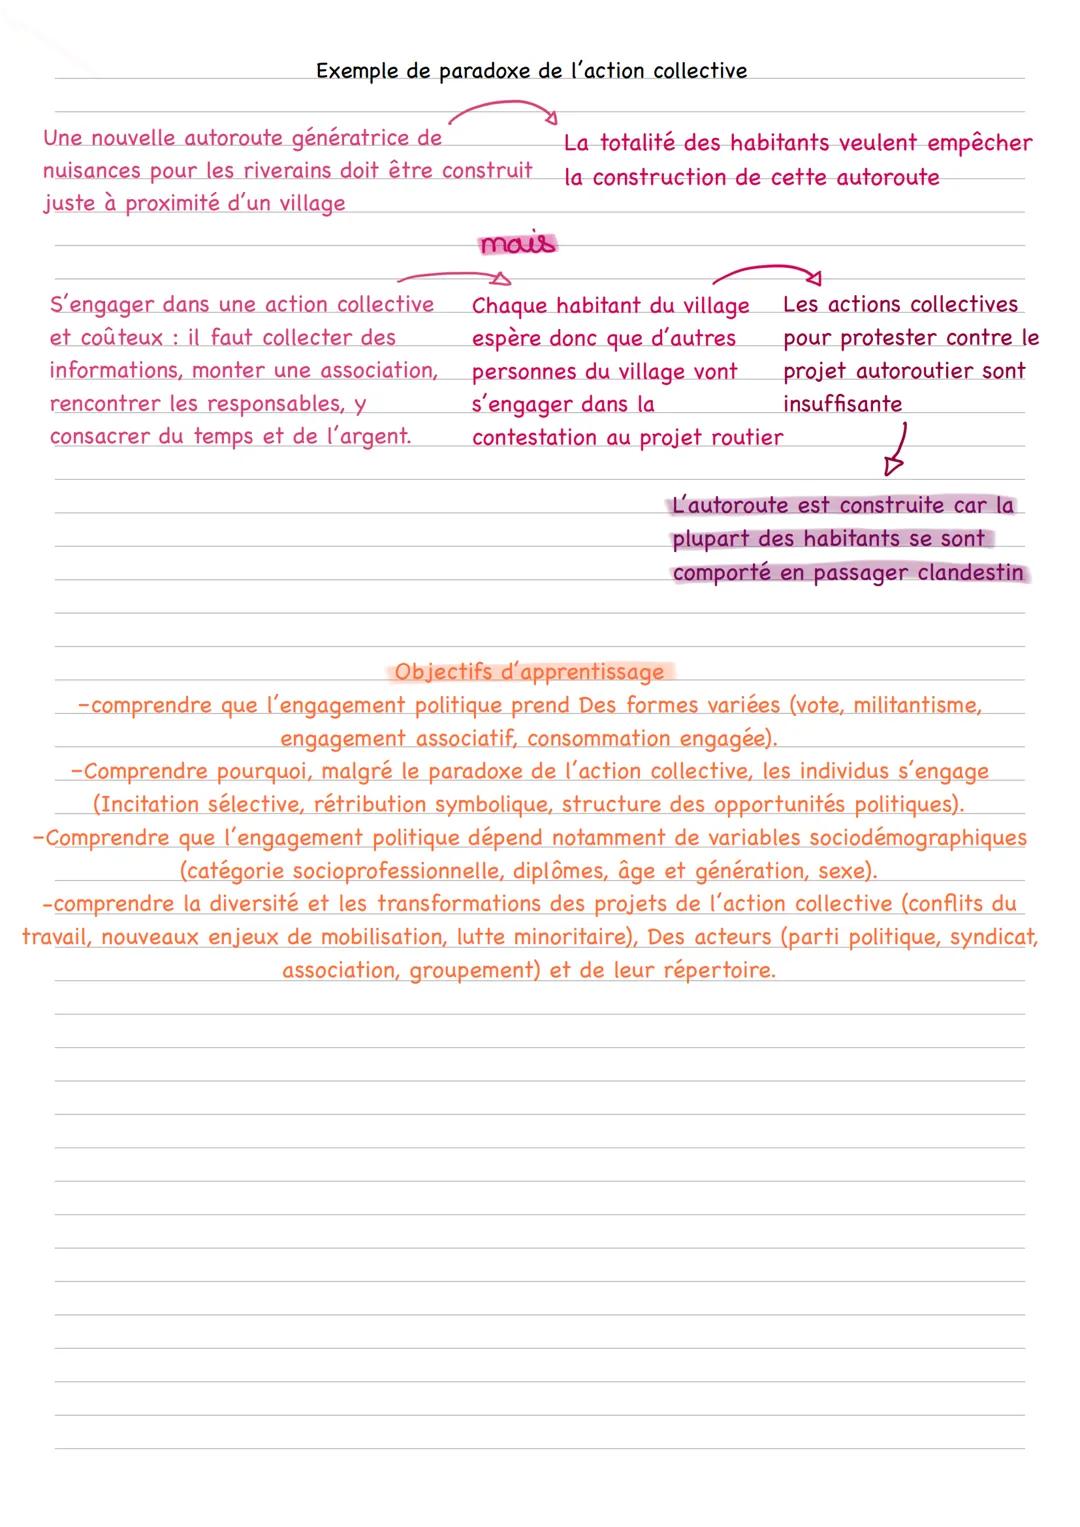 Exemple de paradoxe de l'action collective
Une nouvelle autoroute génératrice de
nuisances pour les riverains doit être construit
juste à proximité d'un village
La totalité des habitants veulent empêcher
la construction de cette autoroute
mais
S'engager dans une action collective
et coûteux : il faut collecter des
informations, monter une association,
rencontrer les responsables, y
consacrer du temps et de l'argent.
Chaque habitant du village
espère donc que d'autres
personnes du village vont
s'engager dans la
contestation au projet routier
Les actions collectives
pour protester contre le
projet autoroutier sont
insuffisante
L'autoroute est construite car la
plupart des habitants se sont
comporté en passager clandestin
Objectifs d'apprentissage
-comprendre que l'engagement politique prend Des formes variées (vote, militantisme,
engagement associatif, consommation engagée).
-Comprendre pourquoi, malgré le paradoxe de l'action collective, les individus s'engage
(Incitation sélective, rétribution symbolique, structure des opportunités politiques).
-Comprendre que l'engagement politique dépend notamment de variables sociodémographiques
(catégorie socioprofessionnelle, diplômes, âge et génération, sexe).
-comprendre la diversité et les transformations des projets de l'action collective (conflits du
travail, nouveaux enjeux de mobilisation, lutte minoritaire), Des acteurs (parti politique, syndicat,
association, groupement) et de leur répertoire.